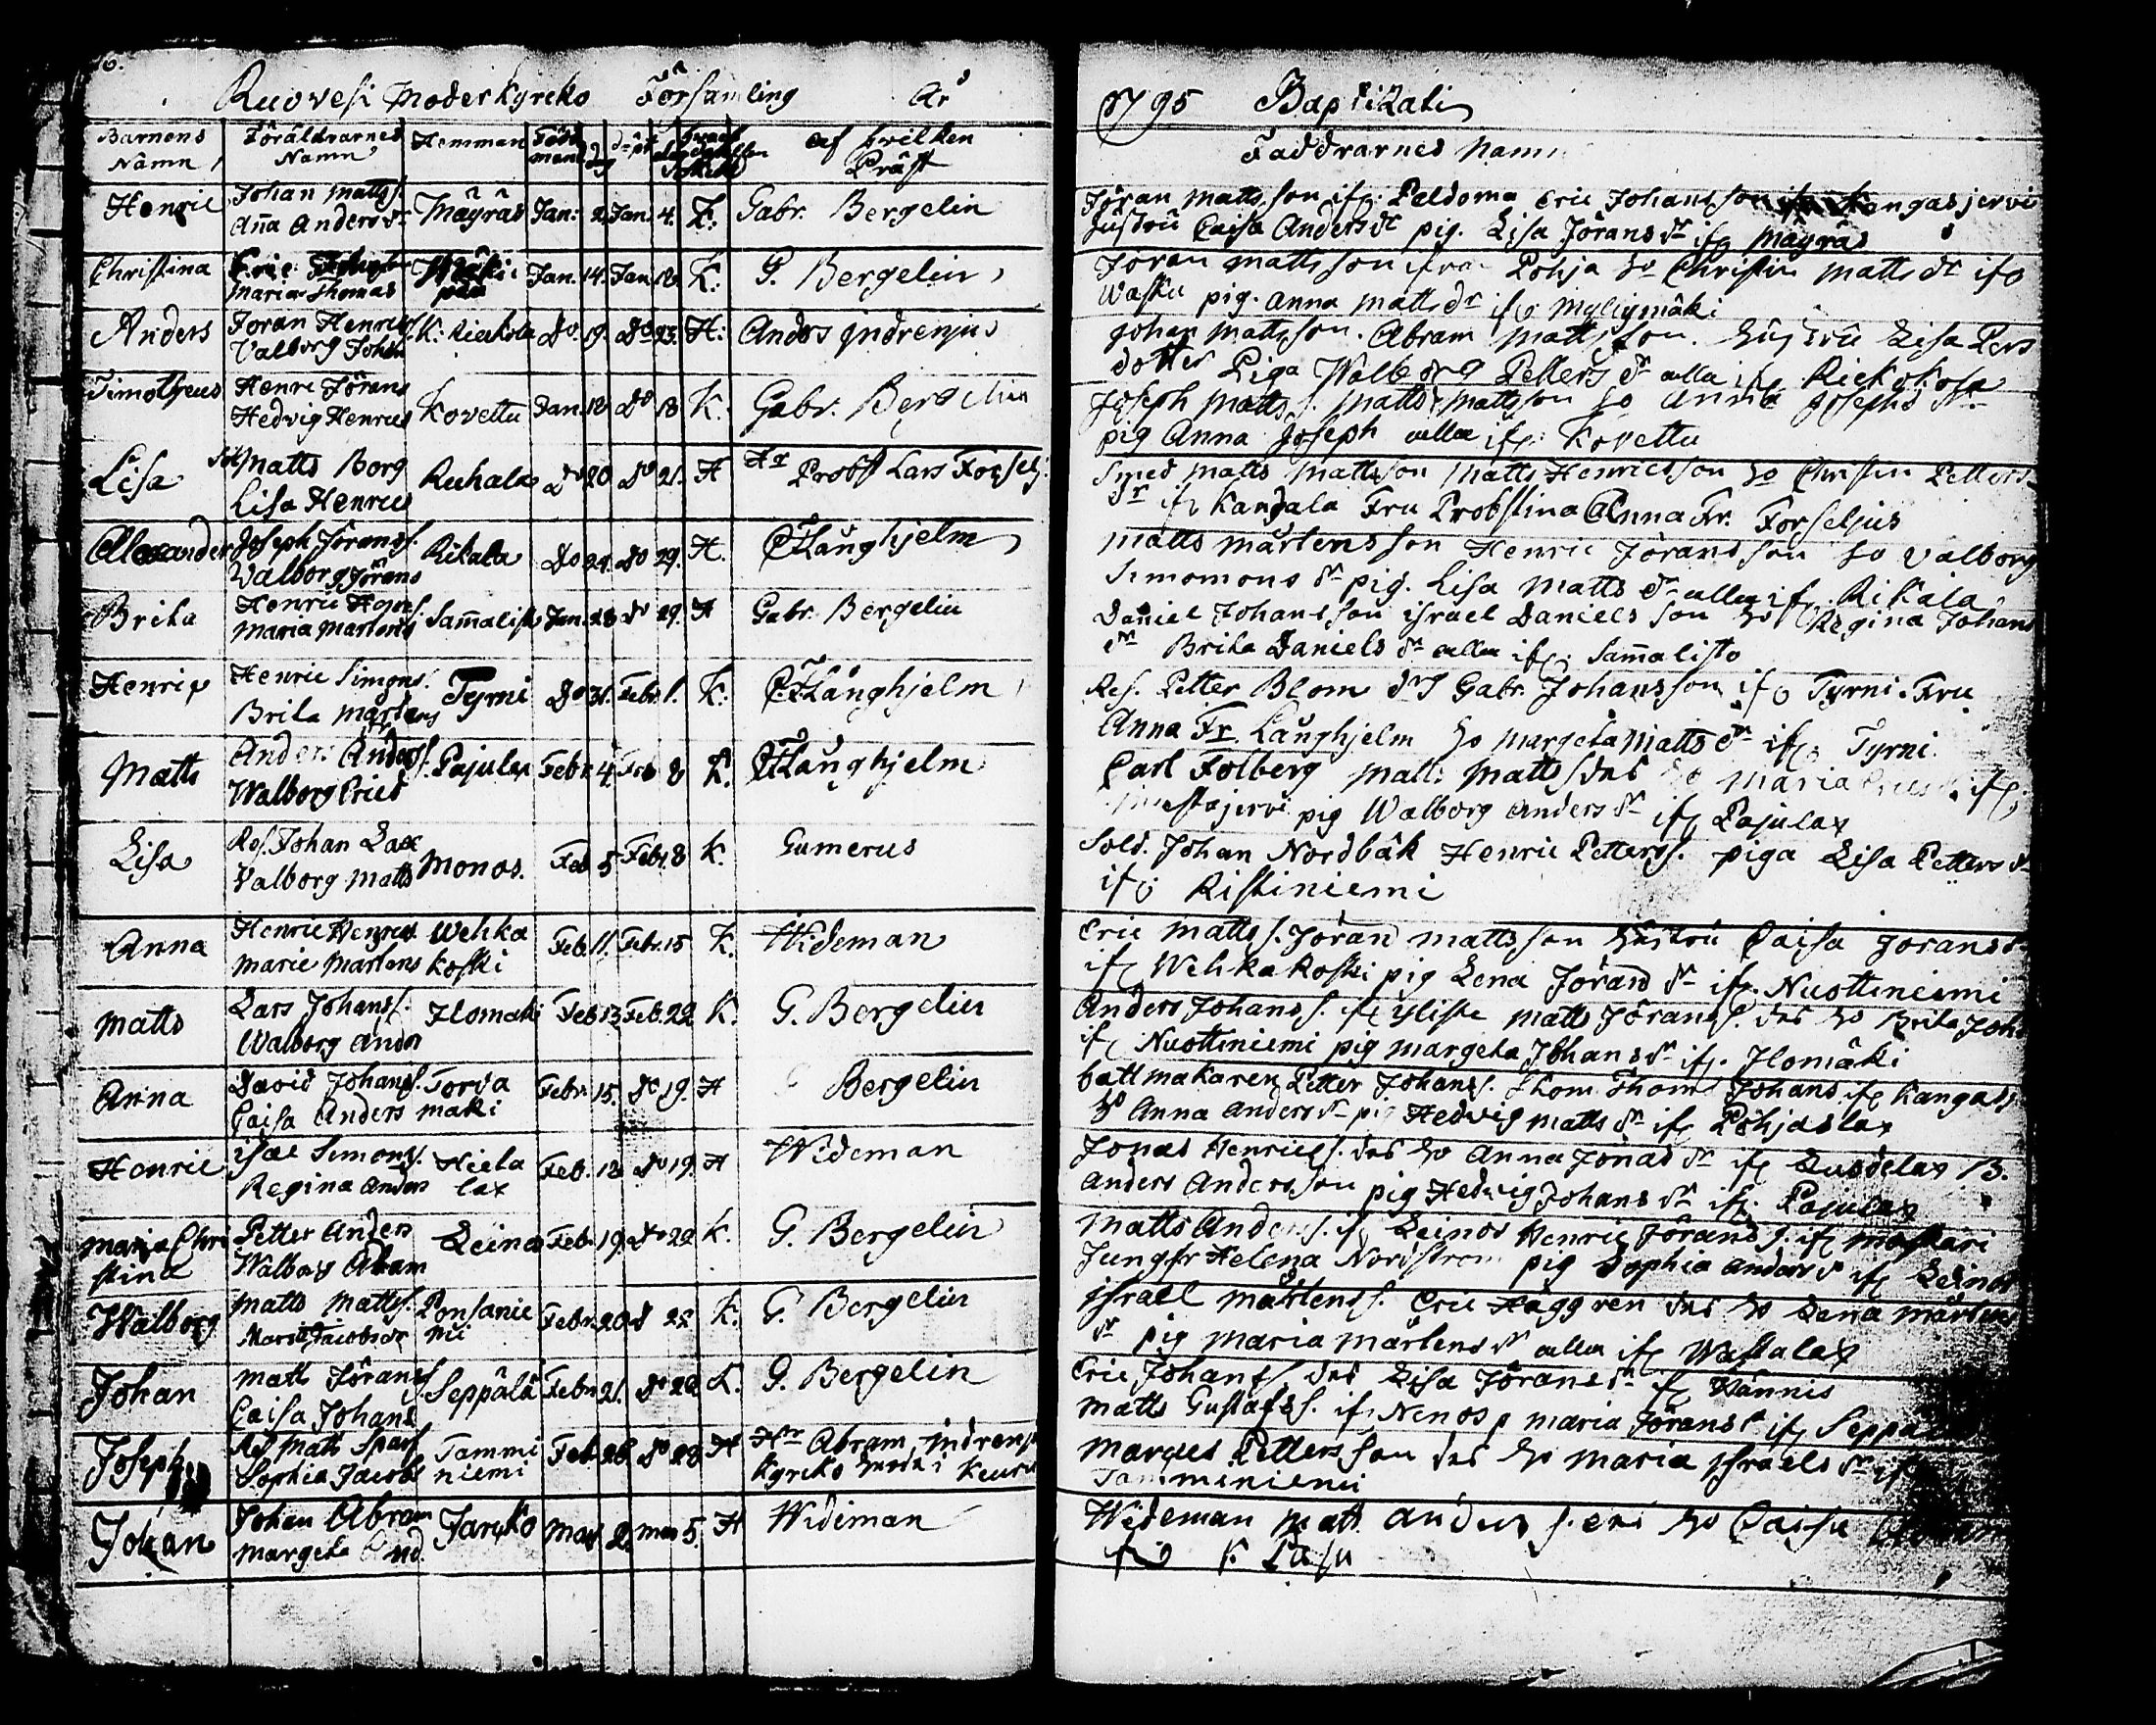 6.
Ruovesi Moderkyrko Församling År
Barnens Namn Föräldrarnes Namn Hemman Född månad dag döpt af hvilken Präst
Henric Johan Matts s. Mäyräs Jan: 2 Jan. 4. K: Gabr. Bergelin
Aña Anders dr
Christina Eric Johan Jan. 14. Jan 18. K: G. Bergelin
Maria Thomas pää
Anders Jöran Henrics K: Do. 19. Do 25. H: Anders Indrenius
Valborg Johan
Timotheus Henric Jörans Kovettu Jan. 18 Do 18 K. Gabr. Bergelin
Hedvig Henrics
Lisa Matts Borg Ruhala Do 20 Do 21. H Hr Probst Lars Forselj:
Lisa Henrics
Alexander Joseph Jörans s. Rikala Do 24. Do 29. H. Långhjelm
Walborg Jörans
Brita Henric Hens s. Sam̃alisto Jan. 28 Do 29. H Gabr. Bergelin
Maria Martens
Henric Henric Simons s. Tyrni Do 31. Febr. 1. K: Långhjelm
Brita Martens
Matts Anders Anders s. Pajulax Febr. 4. Feb 8 K. Långhjelm
Walborg Erics
Lisa Res. Johan Lax Monos. Feb 5 Febr. 8 K. Gumerus
Valborg Matts
Anna Henric Henrics Wehka Feb. 11. Febr. 15 K. Wideman
Marie Martens koski
Matts Lars Johans s. Ilomäki Feb 13. Feb. 22 K. G. Bergelin
Walborg Anders
Anna David Johans s. Torva Febr. 15. Do 19. H Bergelin
Caisa Anders maki
Henric Isac Simons s. Hieta Feb. 18 Do 19. H Wideman
Regina Anders lax
Maria Chri Petter Anders Leinos Feb. 19. Do 22 K. G. Bergelin
stina Walborg Abram
Walborg Matts Matts s. Ponsanie Febr. 20 d 22 K. G. Bergelin
Marith Jacobs dr mi
Johan Matts Jörans s. Seppälä Febr. 21. Do 22 K. G. Bergelin
Caisa Johans
Joseph Res Matts Sparf Tammi Feb. 26 Do 28 H Hr Abram Indren
Sophia Jacobs niemi Kyrko i Keuru
Johan Johan Abram Jarkko Mars 2. Mars 5. H Wideman
Margeta And.
1795 Baptizati
Faddrarnes Namn
Jöran Mattsson ifr. Paldoma Eric Johansson Kangasjervi
hustru Caisa Anders dr pig. Lisa Jörans dr ifr Mäyräs
Jöran Mattsson ifrån Pohja ho Christin Matts dr ifr
Wasku pig. Anna Matts dr ifr Myllymäki
Johan Mattsson. Abram Mattsson. hustru Lisa Pers
dotter Piga Walborg Petters dr alla ifr Riekokola
Joseph Matts s. Matts Mattsson ho Anna Josephs dr
pig Anna Joseph alla ifr: Kovettu
Smed Matts Mattsson Matts Henricsson ho Christin Petters
dr ifr Kandala Fru Probstina Anna Fr. Forseljus
Matts Mårtensson Henric Jöransson ho Valborg
Simomons dr pig. Lisa Matts dr alla ifr. Rikala
Daniel Johansson Israel Danielsson ho Regina Johans
dr Brita Daniels dr alla ifr: Sam̃alisto
Res. Petter Blom Gabr. Johansson ifr Tyrni. Fru
Anna Fr. Långhjelm ho Margeta Matts dr ifr. Tyrni.
Carl Folberg Matts Matts s dess ho Maria Erics dr ifr
pig Walborg Anders dr ifr Pajulax
Sold. Johan Nordbäk Henric Petters s. piga Lisa Petters dr
ifr Ristiniemi
Eric Matts s. Jöran Mattsson hustru Caisa Jorans dr
ifr Wehkakoski pig Lena Jörans dr ifr. Nuottiniemi
Anders Johans s. ifr Yliste Matts Jörans s. dess ho Brita Joh
ifr Nuottiniemi pig Margeta Johans dr ifr. Ilomäki
Battmakaren Petter Johans s. Thom. Thoms Johans ifr Kangas
ho Anna Anders dr pig Hedvig Matts dr ifr Pohjaslax
Jonas Henrics s. dess ho Anna Jonas dr ifr Lusdelax B.
Anders Andersson pig Hedvig Johans dr ifr: Pajulax
Matts Anders s. ifr Leinos Henric Jörans s. ifr Mustari
Jungfr Helena Nordstrom pig Sophia Anders dr ifr Leinos
Israel Mårtens s. Eric Häggren dess ho Lena Mårtens
dr pig Maria Mårtens dr alla ifr Wastalax
Eric Johans s. dess Lisa Jörans dr ifr Hännis
Matts Gustafs s. ifr Nenos p Maria Jörans dr ifr Seppä
Marcus Pettersson dess ho Maria Israels dr ifr
Tamminiemi
Wideman Matts Anders s. ho Caisa
K. Pasu